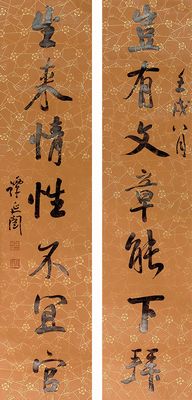 壬戌八月
豈有文章能下拜
生来情性不宜官
譚延闓